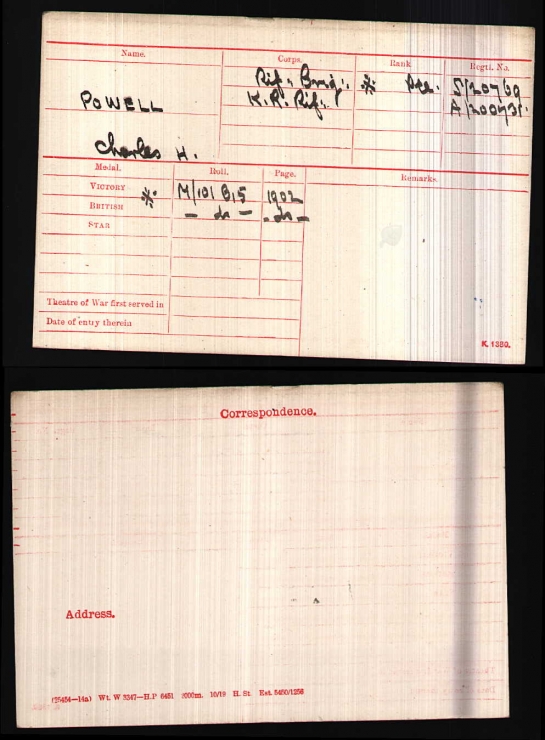 Name. Corps. Rank Regtl. No.
Rif. Brig. * Pte. S/20769
K.R. Rif.
POWELL
Charles H.
Medal. Roll. Page. Remarks.
VICTORY * M/101 B,5 1902
BRITISH — do — — do —
STAR
Theatre of War first served in
Date of entry therein
K. 1380.
Correspondence.
Address.
(25454—14a) Wt. W 3347—H.P 6451 2000m. 10/19 H. St Est. 5460/1256